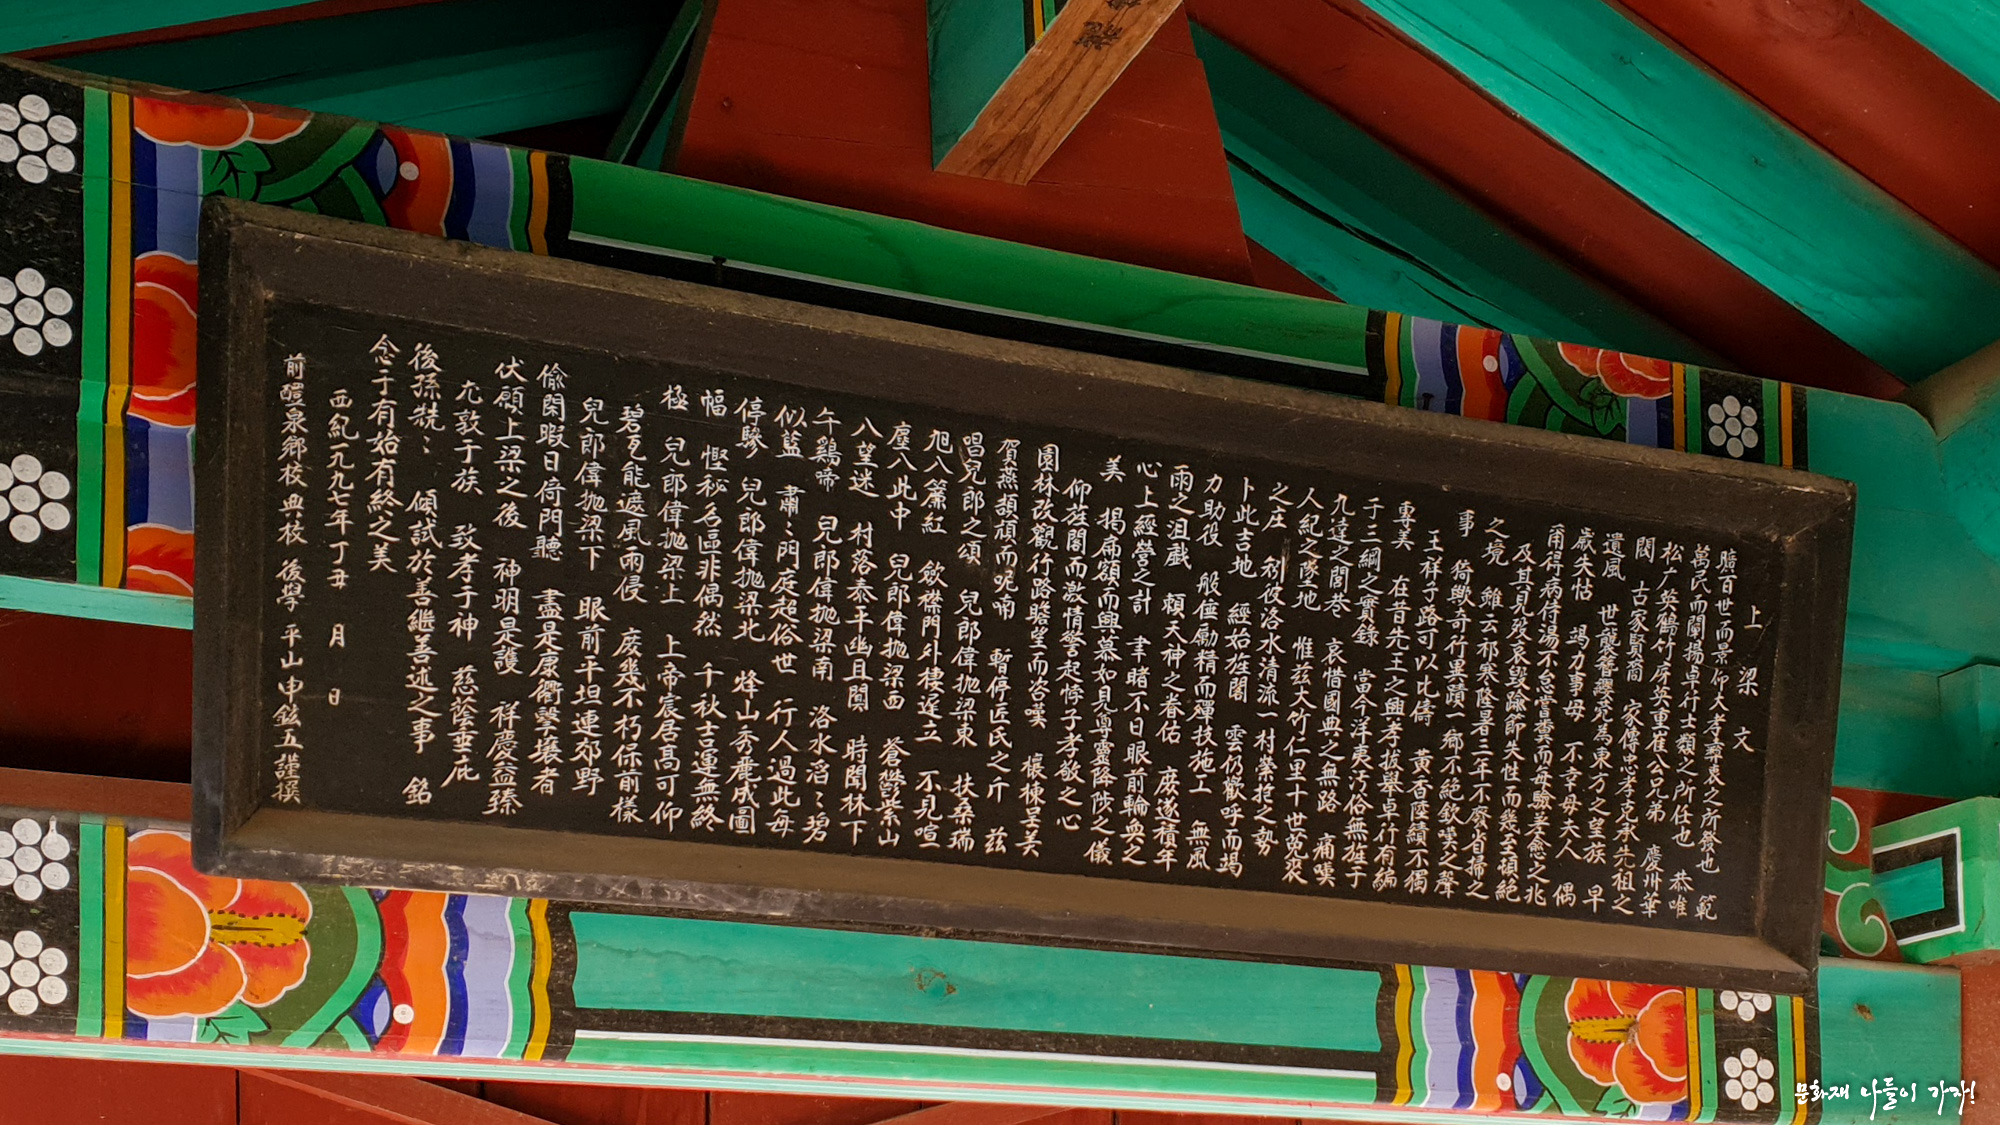 上梁文
曠百世而景仰大孝彝衷之所發也 範
萬民而闡揚卓行士類之所任也 恭唯
松广矣鶴竹房英重崔公兄弟 慶州華
閥 古家賢裔 家傳忠孝克承先祖之
遺風 世襲簪纓菀為東方之望族 早
歲失怙 竭力事母 不幸母夫人 偶
爾得病侍湯不怠嘗糞而每驗差愈之兆
及其見歿哀毀踰節失性而幾至頓絕
之境 雖云祁寒隆暑三年不廢省掃之
事 猗歟奇行異蹟一鄉不絕欽嘆之聲
王祥子路可以比儔 黃香陸績不獨
專美 在昔先王之興孝拔舉卓行有編
于三綱之實錄 當今洋夷汚俗無旌于
九達之閭巷 哀惜國典之無路 痛嘆
人紀之墜地 惟玆大竹仁里十世菟裘
之庄 矧彼洛水清流一村縈抱之勢
卜此吉地 經始旌閣 雲仍歡呼而竭
力助役 般倕勵精而殫技施工 無風
雨之沮戱 賴天神之眷佑 庶遂積年
心上經營之計 聿睹不日眼前輪奐之
美 揭扁額而興慕如見尊靈降陟之儀
仰旌閣而激情警起悖子孝敬之心
園林改觀行路瞻望而咨嘆 穰棟呈美
賀燕頡頏而呢喃 暫停匠氏之斤 玆
唱兒郎之頌 兒郎偉抛梁東 扶桑瑞
旭入簾紅 斂襟門外棣逆立 不見喧
塵入此中 兒郎偉抛梁西 蒼鬱紫山
入望迷 村落泰平幽且閴 時聞林下
午鷄啼 兒郎偉抛梁南 洛水滔〻碧
似藍 肅〻門庭超俗世 行人過此每
停驂 兒郎偉抛梁北 烽山秀麗成圖
幅 慳秘名區非偶然 千秋吉運無終
極 兒郎偉抛梁上 上帝宸居高可仰
碧瓦能遮風雨侵 庶幾不朽保前樣
兒郎偉抛梁下 眼前平坦連郊野
偸閑暇日倚門聽 盡是康衢擊壤者
伏願上梁之後 神明是護 祥慶益臻
尤敦于族 致孝于神 慈蔭垂庇
後孫兟〻 傾試於善繼善述之事 銘
念于有始有終之美
西紀一九九七年丁丑 月 日
前醴泉鄕校典校 後學 平山申鉉五謹撰
문화재 나들이 가자!